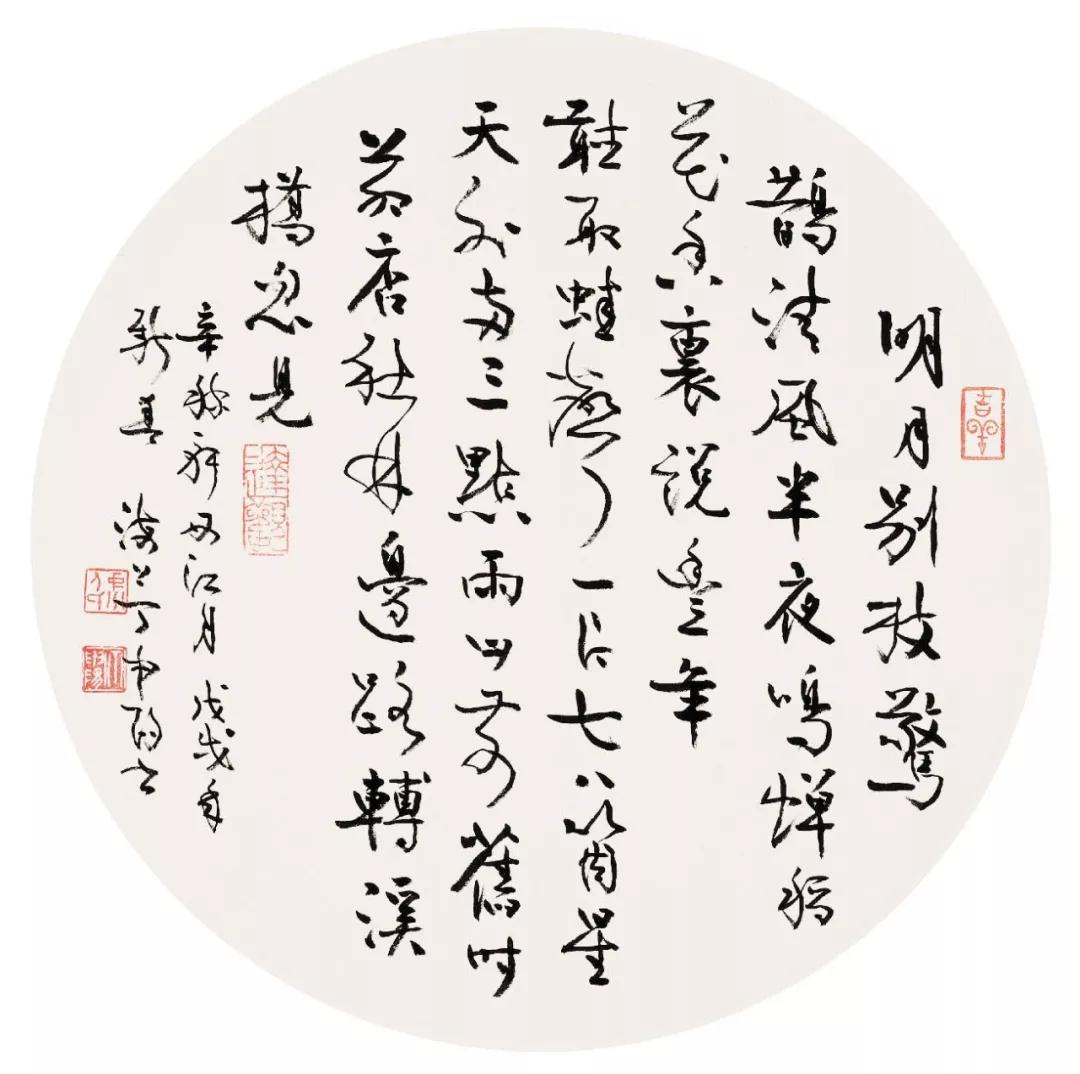 吉羊
明月别枝驚
鵲清風半夜鳴蟬稻
花香裏説豐年
聽取蛙聲一片七八箇星
天外兩三點雨山前舊時
茅店社林邊路轉溪
橋忽見
辛稼軒西江月 戊戌年
新春 海上丁申陽书